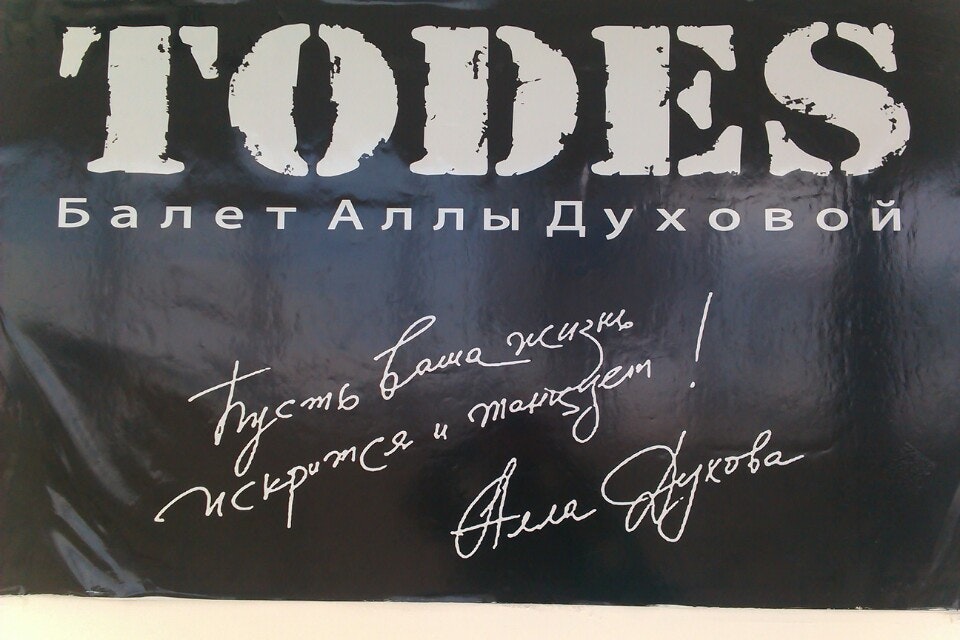 TODES
Балет Аллы Духовой
Пусть Ваша жизнь
искрится и танцует!
Алла Духова